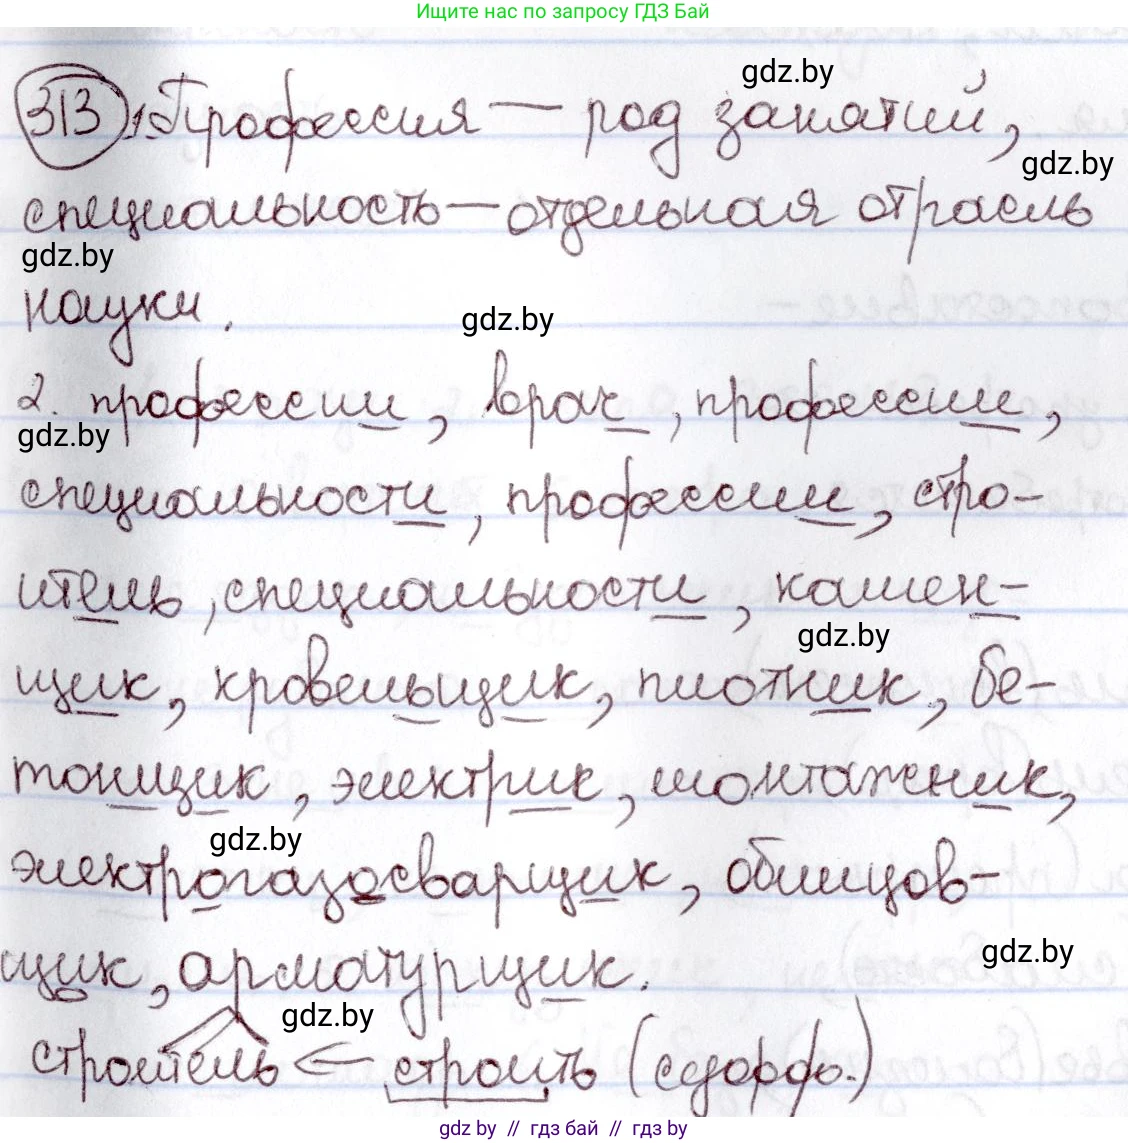 Ищите нас по запросу ГДЗ Бай
gdz.by
313 1. Профессия — род занятий,
gdz.by
специальность — отдельная отрасль
gdz.by
науки.
gdz.by
2. профессии, врач, профессии,
gdz.by
специальности, профессии, стро-
итель, специальности, камен-
gdz.by
щик, кровельщик, плотник, бе-
тонщик, электрик, монтажник,
gdz.by
электрогазосварщик, облицов-
gdz.by
щик, арматурщик.
gdz.by
строитель ← строить (суфф.)
gdz.by // гдз бай // гдз by